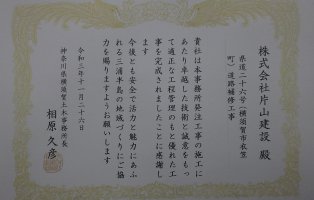 株式会社片山建設 殿
県道二十六号（横須賀市衣笠
町）道路補修工事
貴社は本事務所発注工事の施工に
あたり卓越した技術と誠意をもっ
て適正な工程管理のもと優れた工
事を完成されましたことに感謝し
ます
今後とも安全で活力と魅力にあふ
れる三浦半島の地域づくりにご協
力を賜りますようお願いします
令和三年十一月二十六日
神奈川県横須賀土木事務所長
相原 久彦